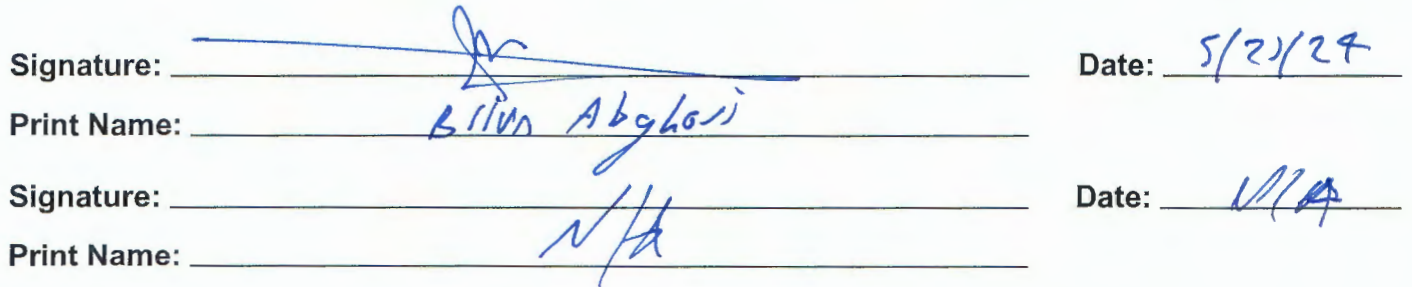 Signature: Date: 5/23/24
Print Name: Brian Abghari
Signature: Date: N/A
Print Name: N/A